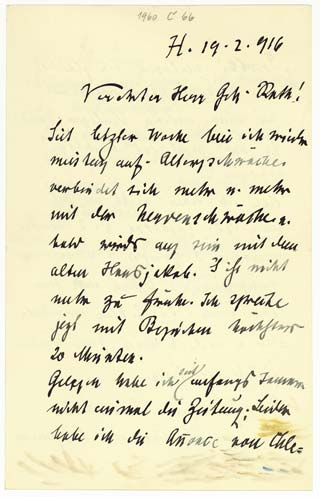 1960 C 66
H. 19.2.916
Verehrter Herr Geh. Rath!
Seit letzter Woche bin ich wieder
auf. Altersschwäche
verbindet sich mehr u. mehr
mit der Nervenschwäche u.
bald wirds aus sein mit dem
alten Hansjakob. Ich nicht
mehr zu Fuße. Ich
jezt mit höchstens
20 Minuten.
Gelesen habe ich seit anfangs Januar
nicht einmal die Zeitung; Leider
habe ich die von Chle=